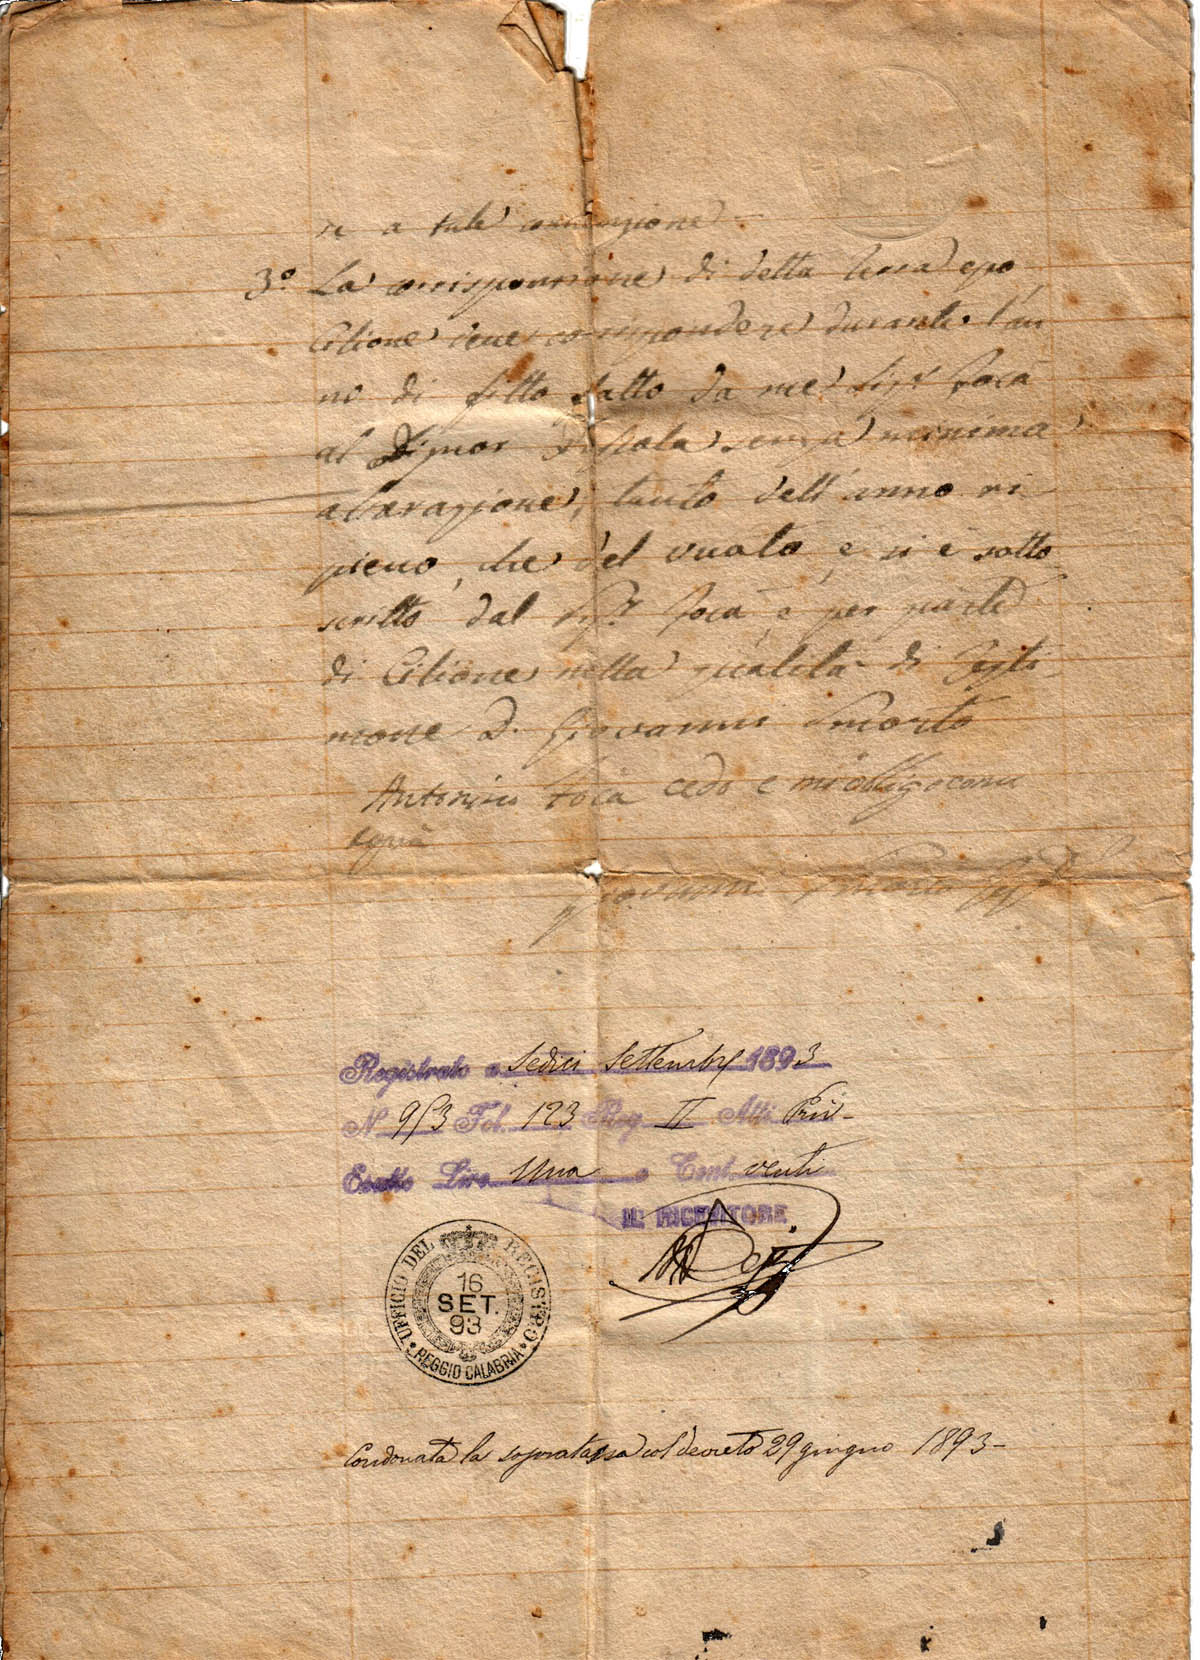 re a tale convenzione
3° La corrisponsione di detta terra epo
Cilione deve corrispondere durante l'an
no di fitto fatto da me Sigr Foca
al Signor Pistola senza minima
alterazione, tanto dell'anno ri
pieno, che del vuoto, e si è sotto
scritto dal Sigr. Foca, e per parte
di Cilione nella qualità di Testi
mone D. Giovanni Smorto
Antonino Foca cedo e mi obbligo come
sopra
Giovanni Smorto
Registrato a Sedici Settembre 1893
N 953 Fol. 123 Reg II Atti Priv-
Esatto Lire Una e Cent. venti
IL RICEVITORE
UFFICIO DEL REGISTRO
16
SET.
93
REGGIO CALABRIA
Condonata la sopratassa col decreto 29 giugno 1893-